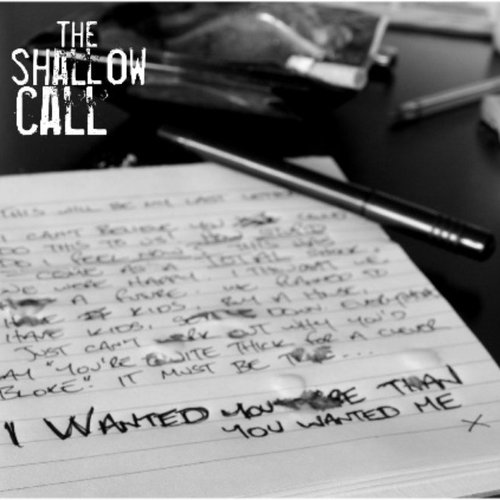 THE
SHALLOW
CALL
THIS WILL BE MY LAST LETTER
I CAN'T BELIEVE YOU COULD
DO THIS TO US! HOW STUPID
DO I FEEL NOW? THIS HAS
COME AS A TOTAL SHOCK.
WE WERE HAPPY. I THOUGHT WE
HAD A FUTURE. WE PLANNED TO
HAVE KIDS, BUY A HOUSE,
HAVE KIDS, SETTLE DOWN EVERYTHING
JUST CAN'T WORK OUT WHY YOU'D
SAY "YOU'RE QUITE THICK FOR A CLEVER
BLOKE". IT MUST BE TRUE...
I WANTED YOU MORE THAN
YOU WANTED ME
X